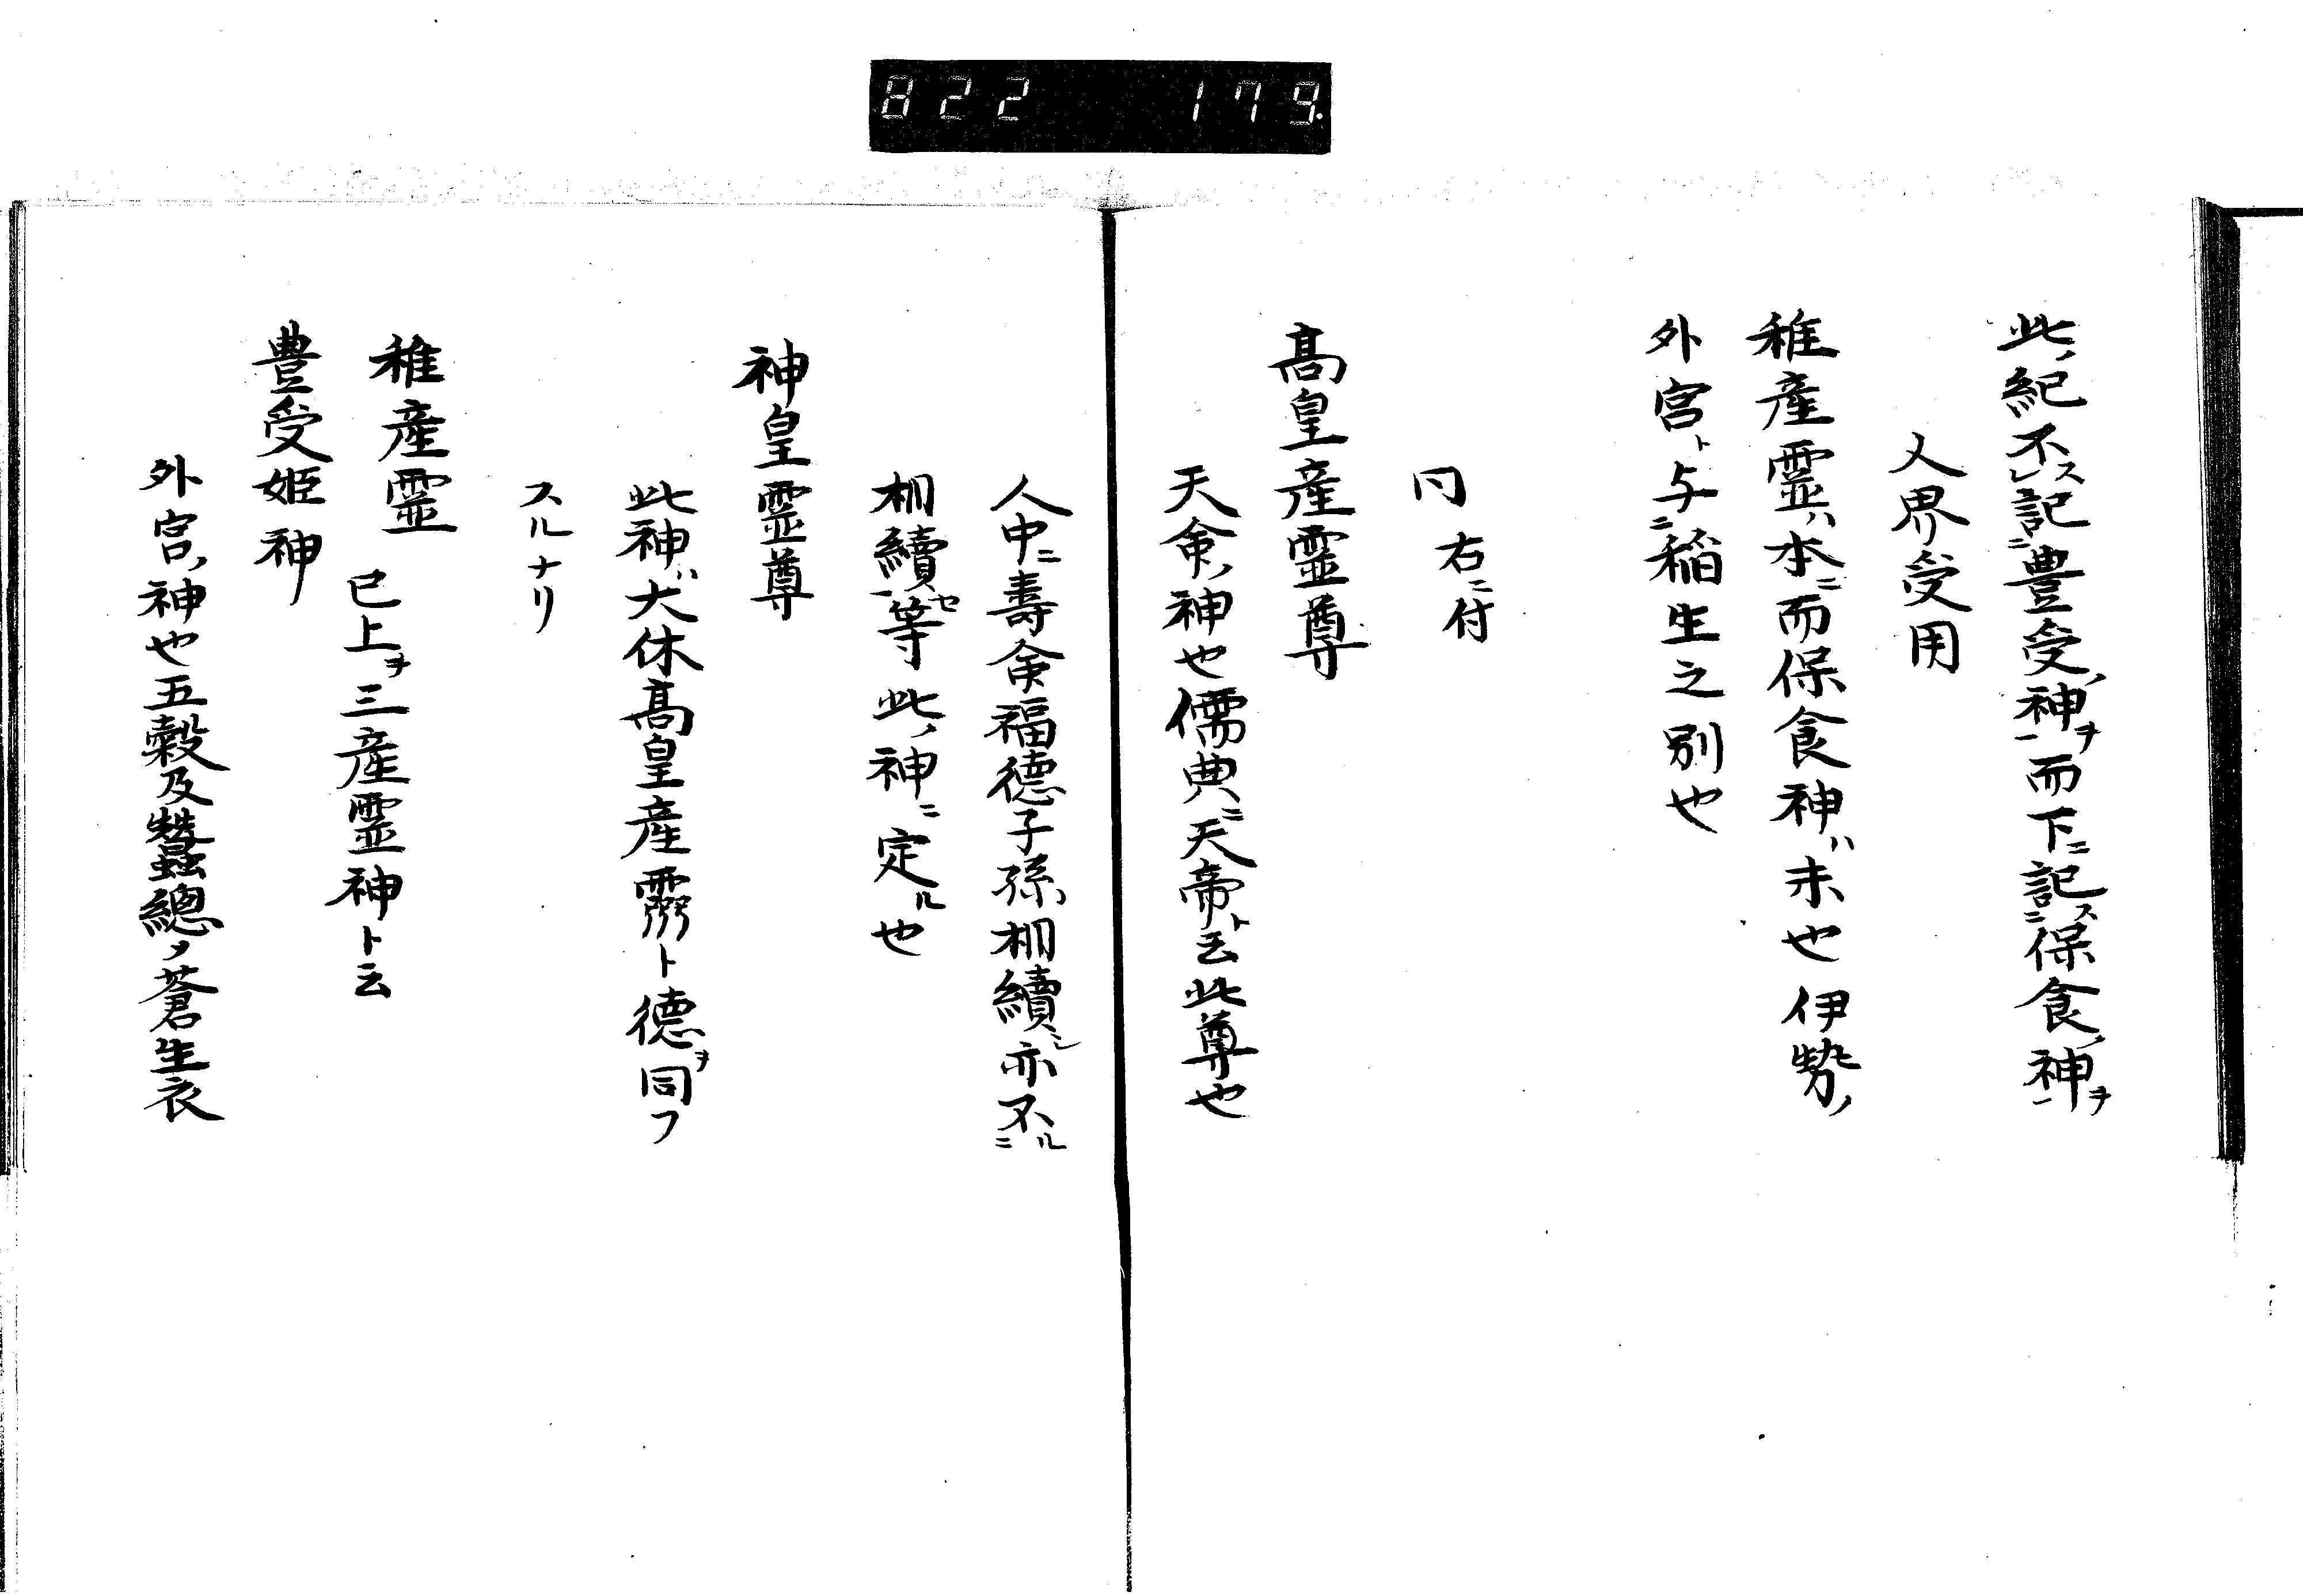 822 179.
此ノ紀不レス記ニ豊受ノ神ヲ一而下ニ記スニ保食ノ神ヲ一
人界受用
稚産霊ハ本ニ而保食神ハ末也伊勢ノ
外宮ト与ニ稲生之別也
同右ニ付
高皇産霊尊
天命ノ神也儒典ニ天帝ト云此尊也
人中ニ壽命福徳子孫相續シ亦不ルニ
相續セ一等此ノ神ニ定ル也
神皇霊尊
此神ハ大体高皇産霊ト徳ヲ同フ
スルナリ
稚産霊
已上ヲ三産霊神ト云
豊受姫神
外宮ノ神也五穀及蠶總ノ蒼生衣